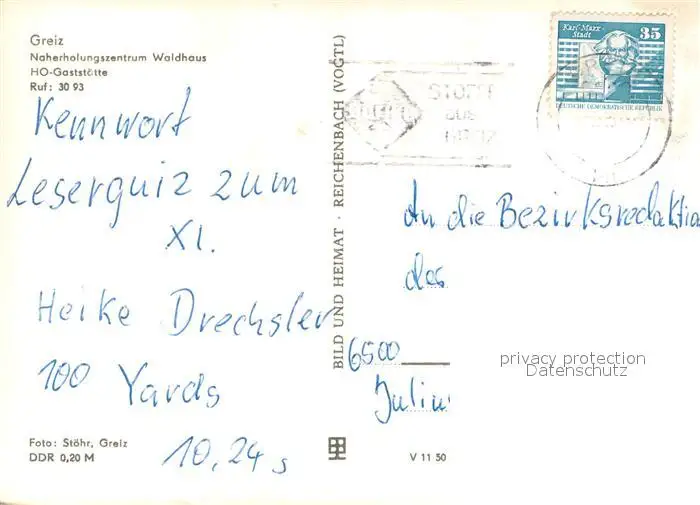 Greiz
Naherholungszentrum Waldhaus
HO-Gaststätte
Ruf: 30 93
Kennwort
Leserquiz zum
XI.
Heike Drechsler
100 Yards
10,24 s
Foto: Stöhr, Greiz
DDR 0,20 M
BILD UND HEIMAT · REICHENBACH (VOGTL)
V 11 50
STOFFE
aus
Karl-Marx-
Stadt
35
DEUTSCHE DEMOKRATISCHE REPUBLIK
An die Bezirksredaktio
des
6500
privacy protection
Datenschutz